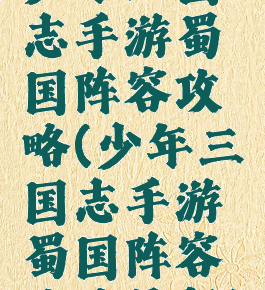 志手游蜀
国阵容攻
略(少年三
国志手游
蜀国阵容